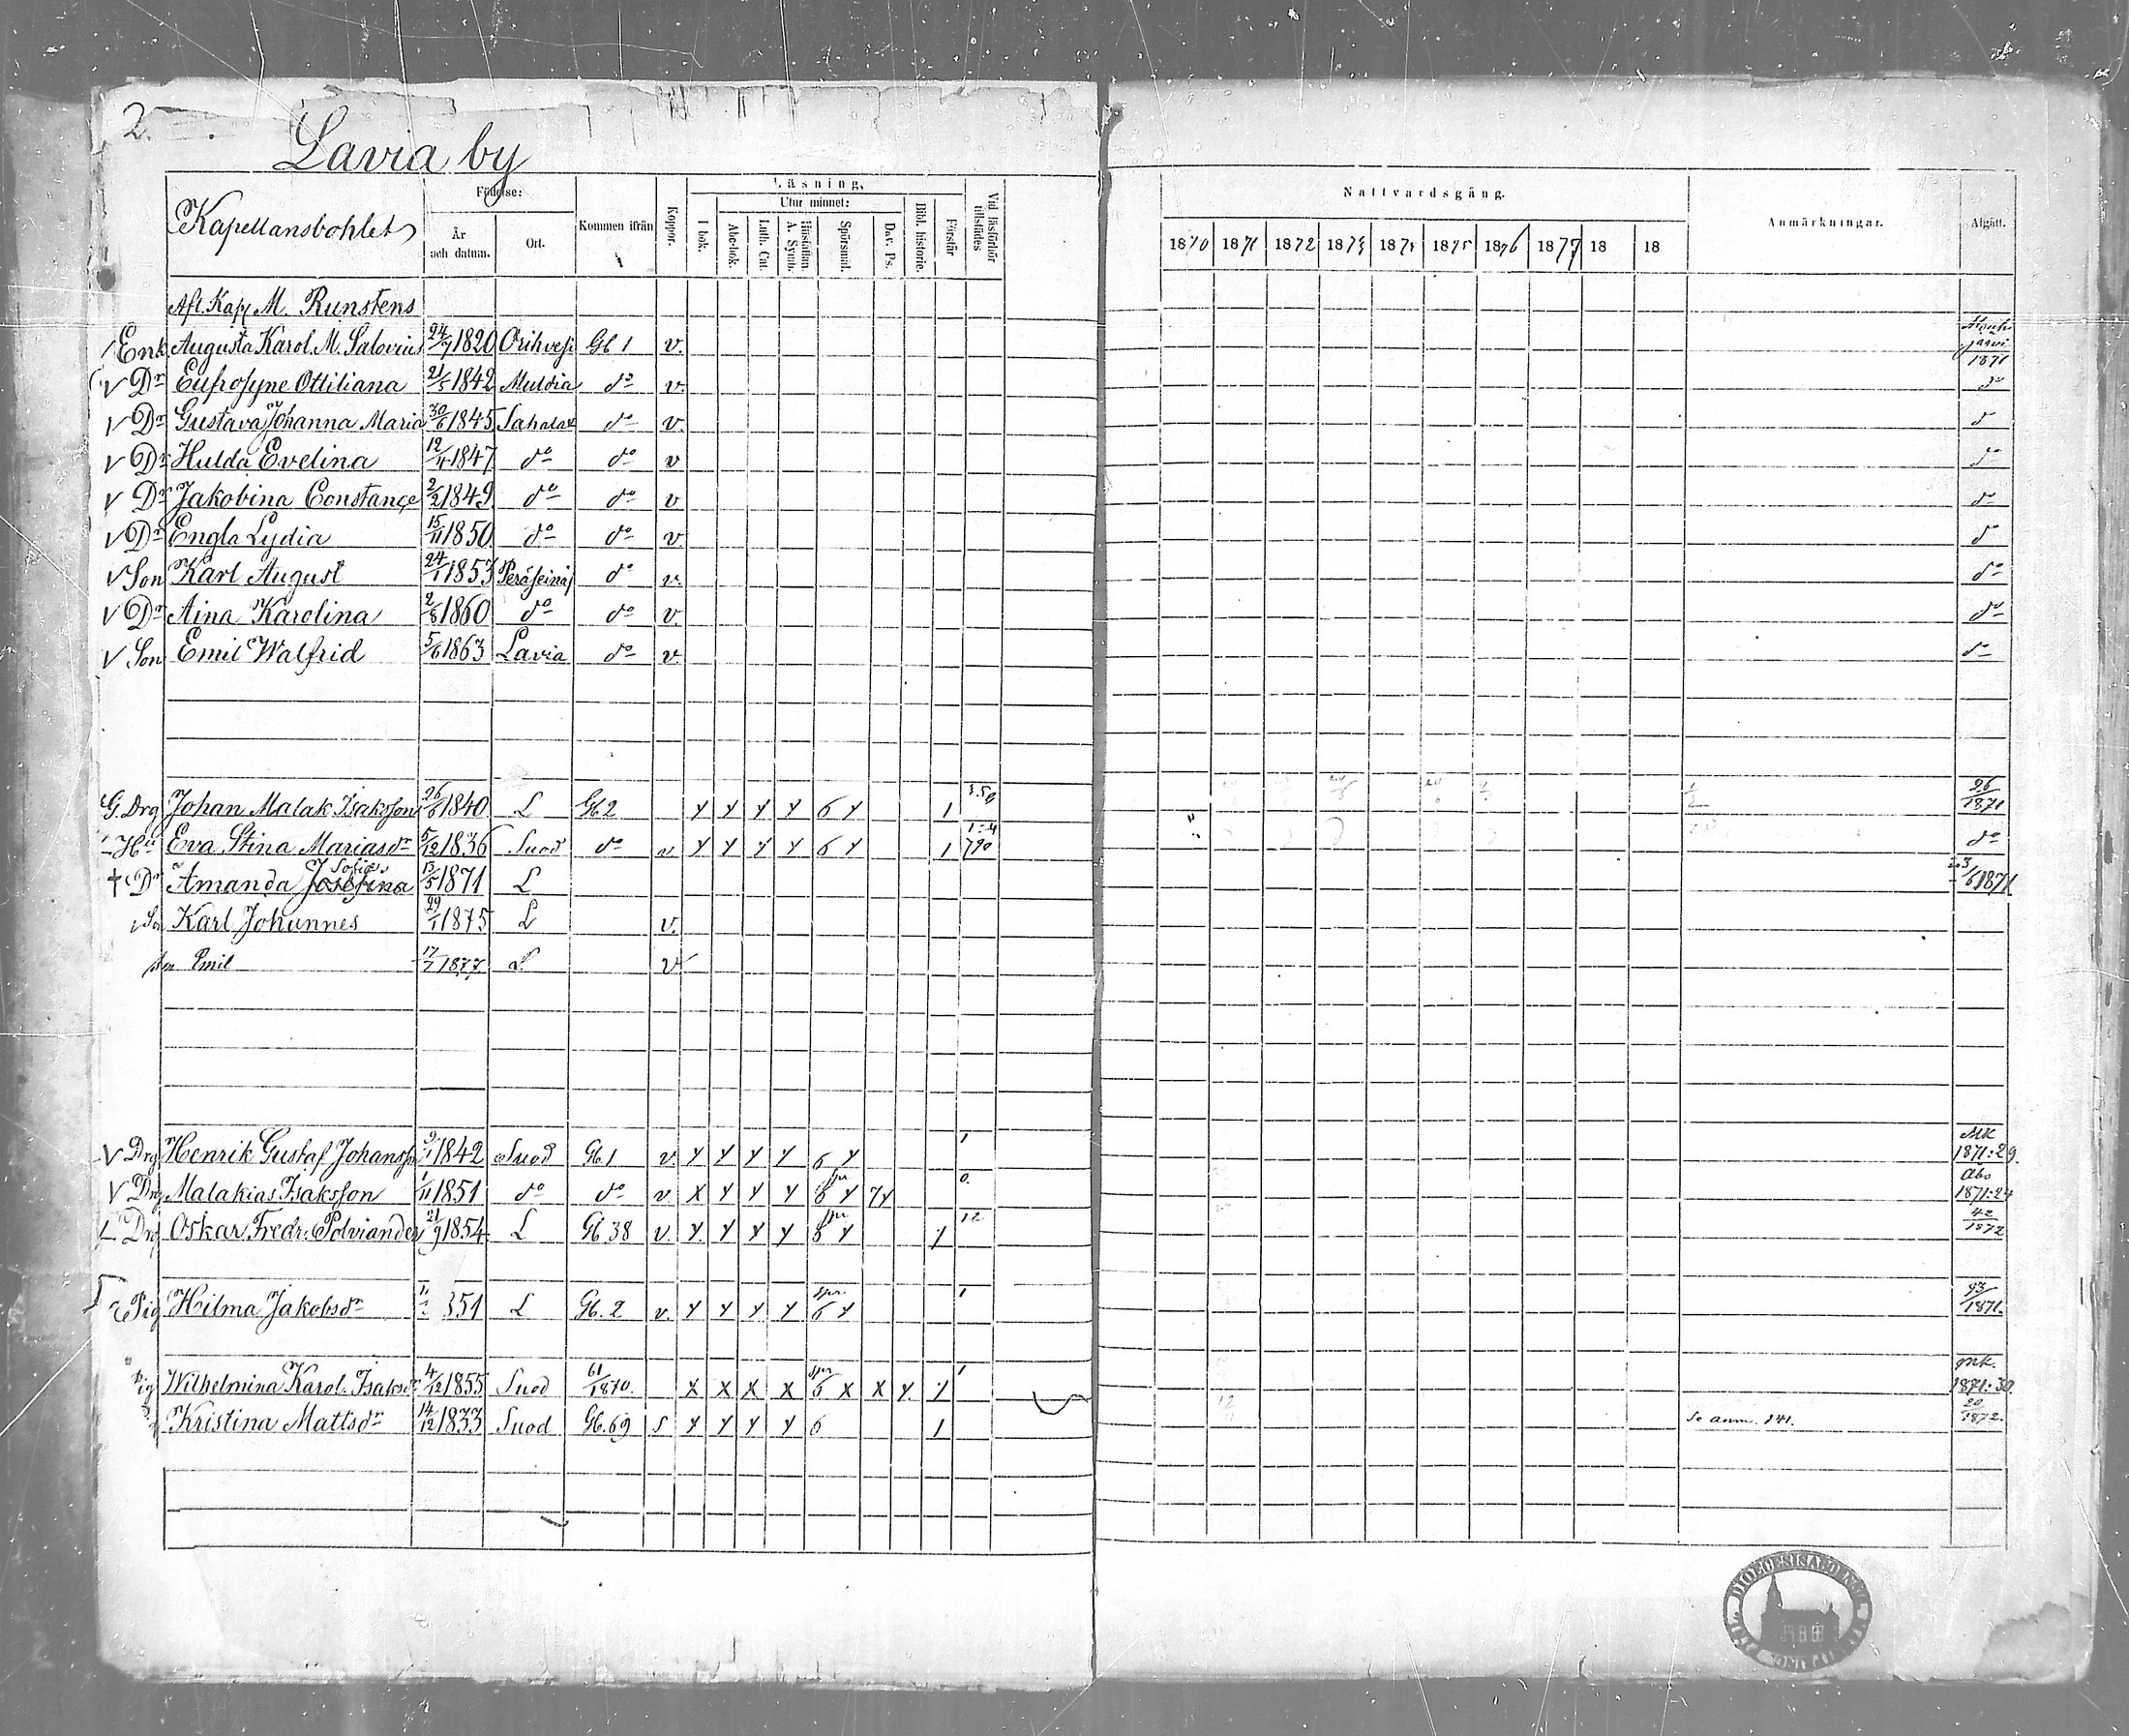 2.
Lavia by
Kapellansbohlet
Födelse:
År och datum.
Ort.
Kommen ifrån
Koppor.
Läsning.
I bok.
Utur minnet:
Abc-bok.
Luth. Cat.
Hustaflan. A. Symb.
Spörsmål.
Dav. Ps.
Bibl. historie.
Förstår
Vid läsförhör tillstädes
Nattvardsgång.
1870 1871 1872 1873 1874 1875 1876 1877 18 18
Anmärkningar.
Afgått.
Afl. Kap. M. Runstens
Enk Augusta Karol. M. Salovius 24/7 1820 Orihvesi Gb 1 v. 1871
v Dr Eufrosyne Ottiliana 21/5 1842 Muldia do v. do
v Dr Gustava Johanna Maria 30/6 1845 Sahalax do v. d
v Dr Hulda Evelina 12/4 1847 do do v do
v Dr Jakobina Constance 2/2 1849 do do v do
v Dr Engla Lydia 15/11 1850 do do v. d
v Son Karl August 24/1 1853 Peräseinäj do v. do
v Dr Aina Karolina 2/8 1860 do do v. do
v Son Emil Walfrid 5/6 1863 Lavia do v. do
G. Drg Johan Malak. Isaksson 26/6 1840 L Gb 2 y y y y 6 y 1 26/1871
Hu Eva Stina Mariasdr 5/12 1836 Suod do v y y y y 6 y 1 do
† Dr Amanda Josefina Sofia 13/5 1871 L 3/6 1871
Son Karl Johannes 29/1 1875 L v.
Son Emil 17/7 1877 L v
v Drg Henrik Gustaf Johansson 1842 Suod Gb 1 v. y y y y 6 y 1 MK 1871:29.
v Drg Malakias Isaksson 1/11 1851 do do v. x y y y 6 y 7y 0. Åbo 1871:24
Drg Oskar Fredr. Polviander 21/9 1854 L Gb 38 v. y y y y 6 y 1 12 42/1872
Pig Hilma Jakobsdr 851 L Gb. 2 v. y y y y spr. 6 y 1 93/1871.
Pig Wilhelmina Karol. Isaksdr 4/12 1855 Suod 61/1870. x x x x spr 6 x x y. 1 1 mk. 1871:30.
Kristina Mattsdr 14/12 1833 Suod Gb. 69 s y y y y 6 1 Se anm. 141. 20/1872.